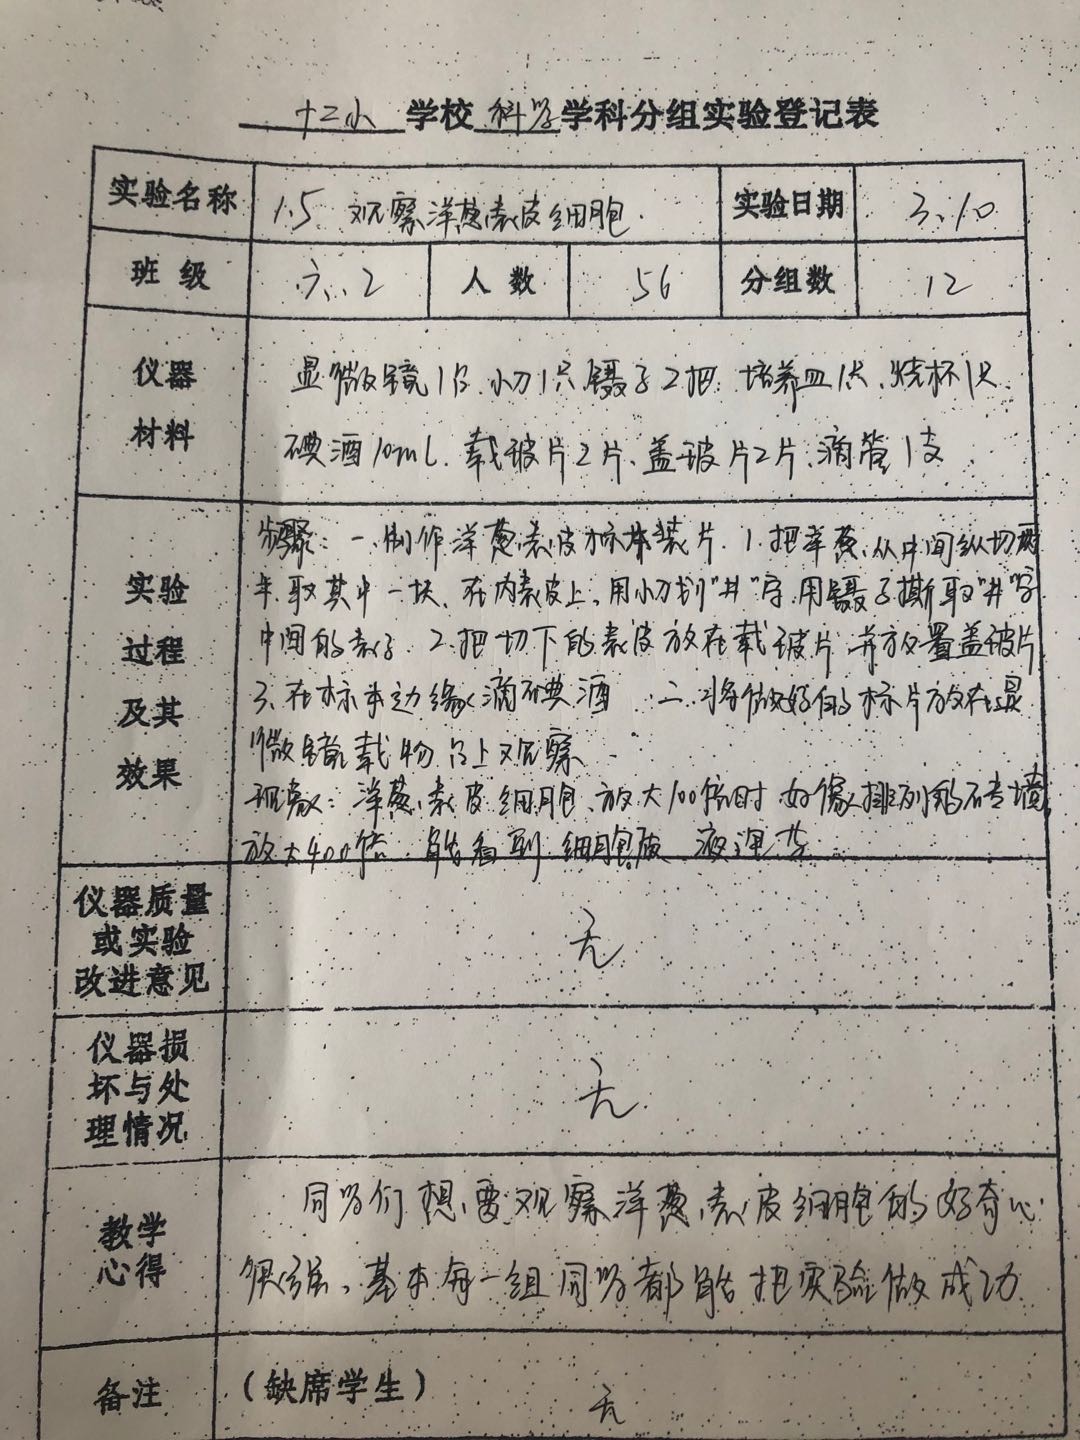 十二小 学校 科学 学科分组实验登记表
实验名称 1.5 观察洋葱表皮细胞. 实验日期 3.10
班级 六.2 人数 56 分组数 12
仪器
材料
显微镜1台.小刀1只镊子2把.培养皿1只、烧杯1只
碘酒10mL.载玻片2片、盖玻片2片、滴管1支
实验
过程
及其
效果
步骤:一.制作洋葱表皮标本装片.1.把洋葱从中间纵切两
半.取其中一块、在内表皮上,用小刀划"井"字.用镊子撕取"井"字
中间的表皮.2.把切下的表皮放在载玻片.并放置盖玻片
3.在标本边缘滴碘酒 二.将做好的标片放在显
微镜载物台上观察
现象:洋葱表皮细胞.放大100倍时好像排列的砖墙
放大400倍.能看到细胞核 液泡等
仪器质量
或实验
改进意见
无
仪器损
坏与处
理情况
无
教学
心得
同学们想要观察洋葱表皮细胞的好奇心
很强、基本每一组同学都能把实验做成功
备注 (缺席学生) 无